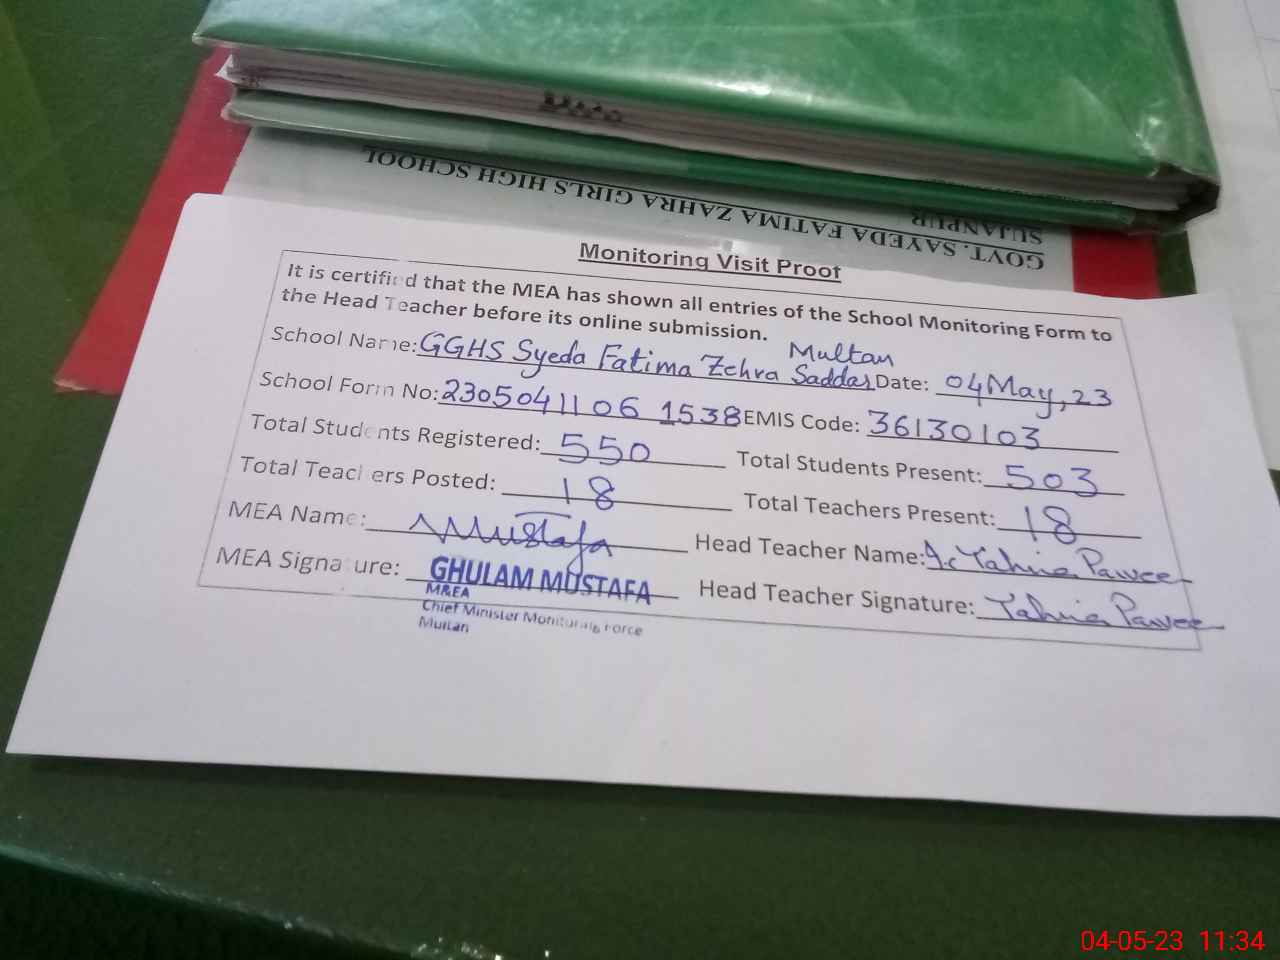 GOVT. SAYEDA FATIMA ZAHRA GIRLS HIGH SCHOOL
SUJANPUR
Monitoring Visit Proof
It is certified that the MEA has shown all entries of the School Monitoring Form to
the Head Teacher before its online submission.
School Name: GGHS Syeda Fatima Zehra Saddar Multan Date: 04 May, 23
School Form No: 2305041106 1538 EMIS Code: 36130103
Total Students Registered: 550 Total Students Present: 503
Total Teachers Posted: 18 Total Teachers Present: 18
MEA Name: Mustafa Head Teacher Name: Tahira Parveen
MEA Signature: GHULAM MUSTAFA Head Teacher Signature: Tahira Parveen
M&EA
Chief Minister Monitoring Force
Multan
04-05-23 11:34